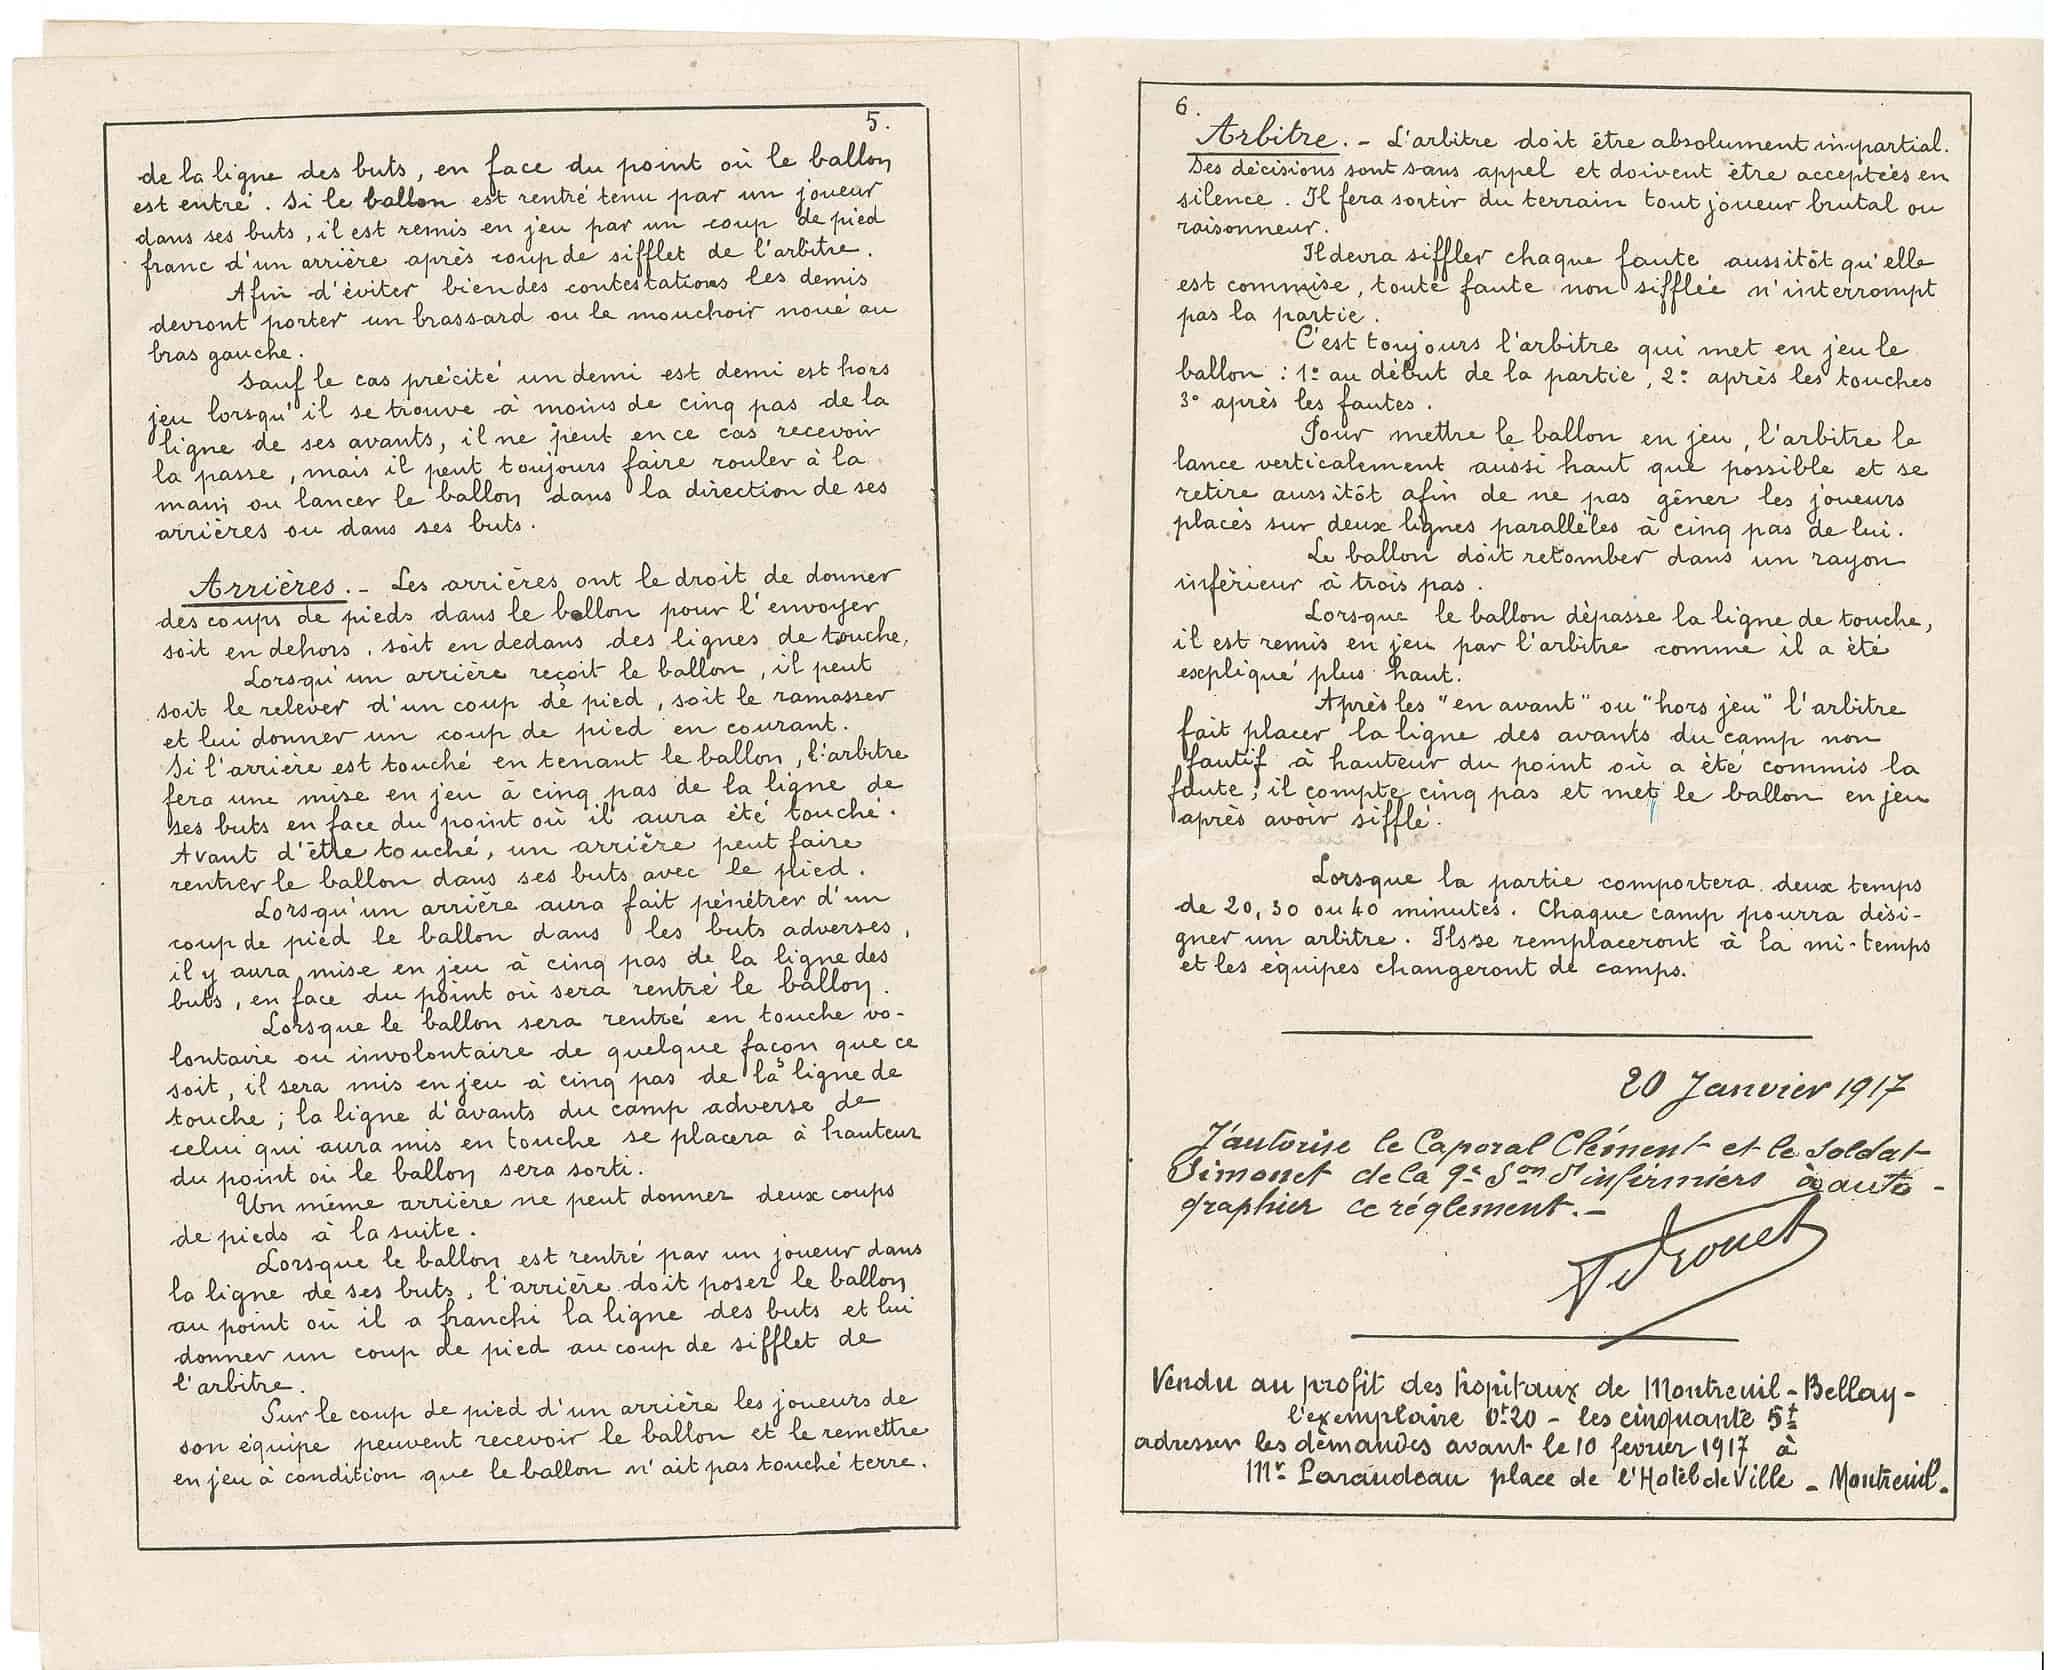 5.
de la ligne des buts, en face du point où le ballon
est entré. Si le ballon est rentré tenu par un joueur
dans ses buts, il est remis en jeu par un coup de pied
franc d'un arrière après coup de sifflet de l'arbitre.
Afin d'éviter bien des contestations les demis
devront porter un brassard ou le mouchoir noué au
bras gauche.
Sauf le cas précité un demi est demi est hors
jeu lorsqu'il se trouve à moins de cinq pas de la
ligne de ses avants, il ne peut en ce cas recevoir
la passe, mais il peut toujours faire rouler à la
main ou lancer le ballon dans la direction de ses
arrières ou dans ses buts.
Arrières. - Les arrières ont le droit de donner
des coups de pieds dans le ballon pour l'envoyer
soit en dehors, soit en dedans des lignes de touche,
Lorsqu'un arrière reçoit le ballon, il peut
soit le relever d'un coup de pied, soit le ramasser
et lui donner un coup de pied en courant.
Si l'arrière est touché en tenant le ballon, l'arbitre
fera une mise en jeu à cinq pas de la ligne de
ses buts en face du point où il aura été touché.
Avant d'être touché, un arrière peut faire
rentrer le ballon dans ses buts avec le pied.
Lorsqu'un arrière aura fait pénétrer d'un
coup de pied le ballon dans les buts adverses,
il y aura mise en jeu à cinq pas de la ligne des
buts, en face du point où sera rentré le ballon.
Lorsque le ballon sera rentré en touche vo-
lontaire ou involontaire de quelque façon que ce
soit, il sera mis en jeu à cinq pas de la ligne de
touche; la ligne d'avants du camp adverse de
celui qui aura mis en touche se placera à hauteur
du point où le ballon sera sorti.
Un même arrière ne peut donner deux coups
de pieds à la suite.
Lorsque le ballon est rentré par un joueur dans
la ligne de ses buts, l'arrière doit poser le ballon
au point où il a franchi la ligne des buts et lui
donner un coup de pied au coup de sifflet de
l'arbitre.
Sur le coup de pied d'un arrière les joueurs de
son équipe peuvent recevoir le ballon et le remettre
en jeu à condition que le ballon n'ait pas touché terre.
6.
Arbitre. - L'arbitre doit être absolument impartial.
Ses décisions sont sans appel et doivent être acceptées en
silence. Il fera sortir du terrain tout joueur brutal ou
raisonneur.
Il devra siffler chaque faute aussitôt qu'elle
est commise, toute faute non sifflée n'interrompt
pas la partie.
C'est toujours l'arbitre qui met en jeu le
ballon : 1° au début de la partie, 2° après les touches
3° après les fautes.
Pour mettre le ballon en jeu, l'arbitre le
lance verticalement aussi haut que possible et se
retire aussitôt afin de ne pas gêner les joueurs
placés sur deux lignes parallèles à cinq pas de lui.
Le ballon doit retomber dans un rayon
inférieur à trois pas.
Lorsque le ballon dépasse la ligne de touche,
il est remis en jeu par l'arbitre comme il a été
expliqué plus haut.
Après les "en avant" ou "hors jeu" l'arbitre
fait placer la ligne des avants du camp non
fautif à hauteur du point où a été commis la
faute; il compte cinq pas et met le ballon en jeu
après avoir sifflé.
Lorsque la partie comportera deux temps
de 20, 30 ou 40 minutes. Chaque camp pourra dési-
gner un arbitre. Ils se remplaceront à la mi-temps
et les équipes changeront de camps.
20 Janvier 1917
J'autorise le Caporal Clément et le soldat
Simonet de la 9e Son d'infirmiers à auto-
graphier ce réglement.-
Vendu au profit des hopitaux de Montreuil-Bellay-
l'exemplaire 0f20 - les cinquante 5f
adresser les demandes avant le 10 fevrier 1917 à
Mr Paraudeau place de l'Hotel de Ville - Montreuil.